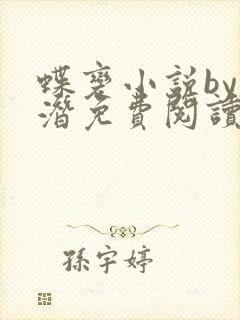 蝶变小说by
潜免費閱讀
孫宇婷